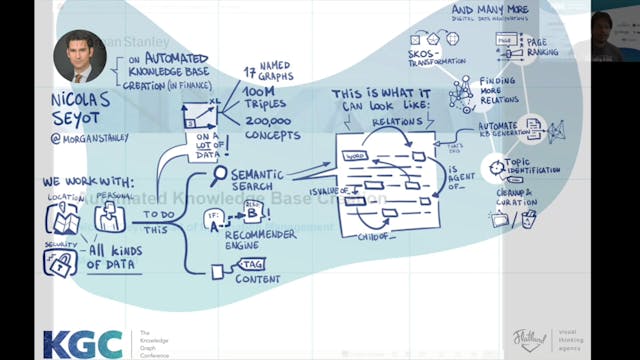 ON AUTOMATED
KNOWLEDGE BASE
CREATION (IN FINANCE)
NICOLAS
SEYOT
@MORGANSTANLEY
17 NAMED
GRAPHS
100M
TRIPLES
200,000
CONCEPTS
XL
ON A
LOT OF
DATA!
WE WORK WITH:
LOCATION
PERSONAL
SECURITY
ALL KINDS
OF DATA
TO DO
THIS
SEMANTIC
SEARCH
IF:
A
B!
RECOMMENDER
ENGINE
TAG
CONTENT
THIS IS WHAT IT
CAN LOOK LIKE:
RELATIONS
WORD
IS VALUE OF_
IS
AGENT
OF_
CHILD OF_
AND MANY MORE
DIGITAL DATA MANIPULATIONS
SKOS-
TRANSFORMATION
PAGE
PAGE
RANKING
FINDING
MORE
RELATIONS
AUTOMATE
KB GENERATION
TOPIC
IDENTIFICATION
CLEANUP &
CURATION
gan Stanley
utomated Knowledge Base Creation
Management
KGC
The
Knowledge
Graph
Conference
Flatland
visual
thinking
agency